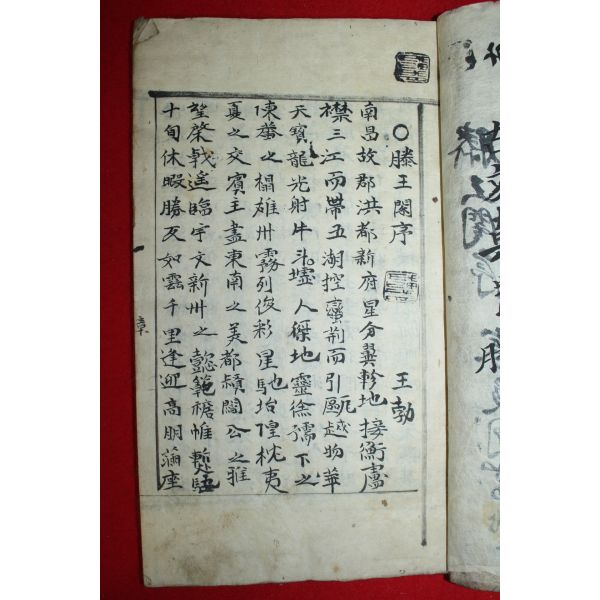 ○滕王閣序 王勃
南昌故郡洪都新府星分翼軫地接衡廬
襟三江而帶五湖控蠻荊而引甌越物華
天寶龍光射牛斗墟人傑地靈徐孺下之
陳蕃之榻雄州霧列俊彩星馳坮隍枕夷
夏之交賓主盡東南之美都閻公之雅
望棨戟遙臨宇文新州之懿範襜帷蹔駐
十旬休暇勝友如雲千里逢迎高朋滿座
章